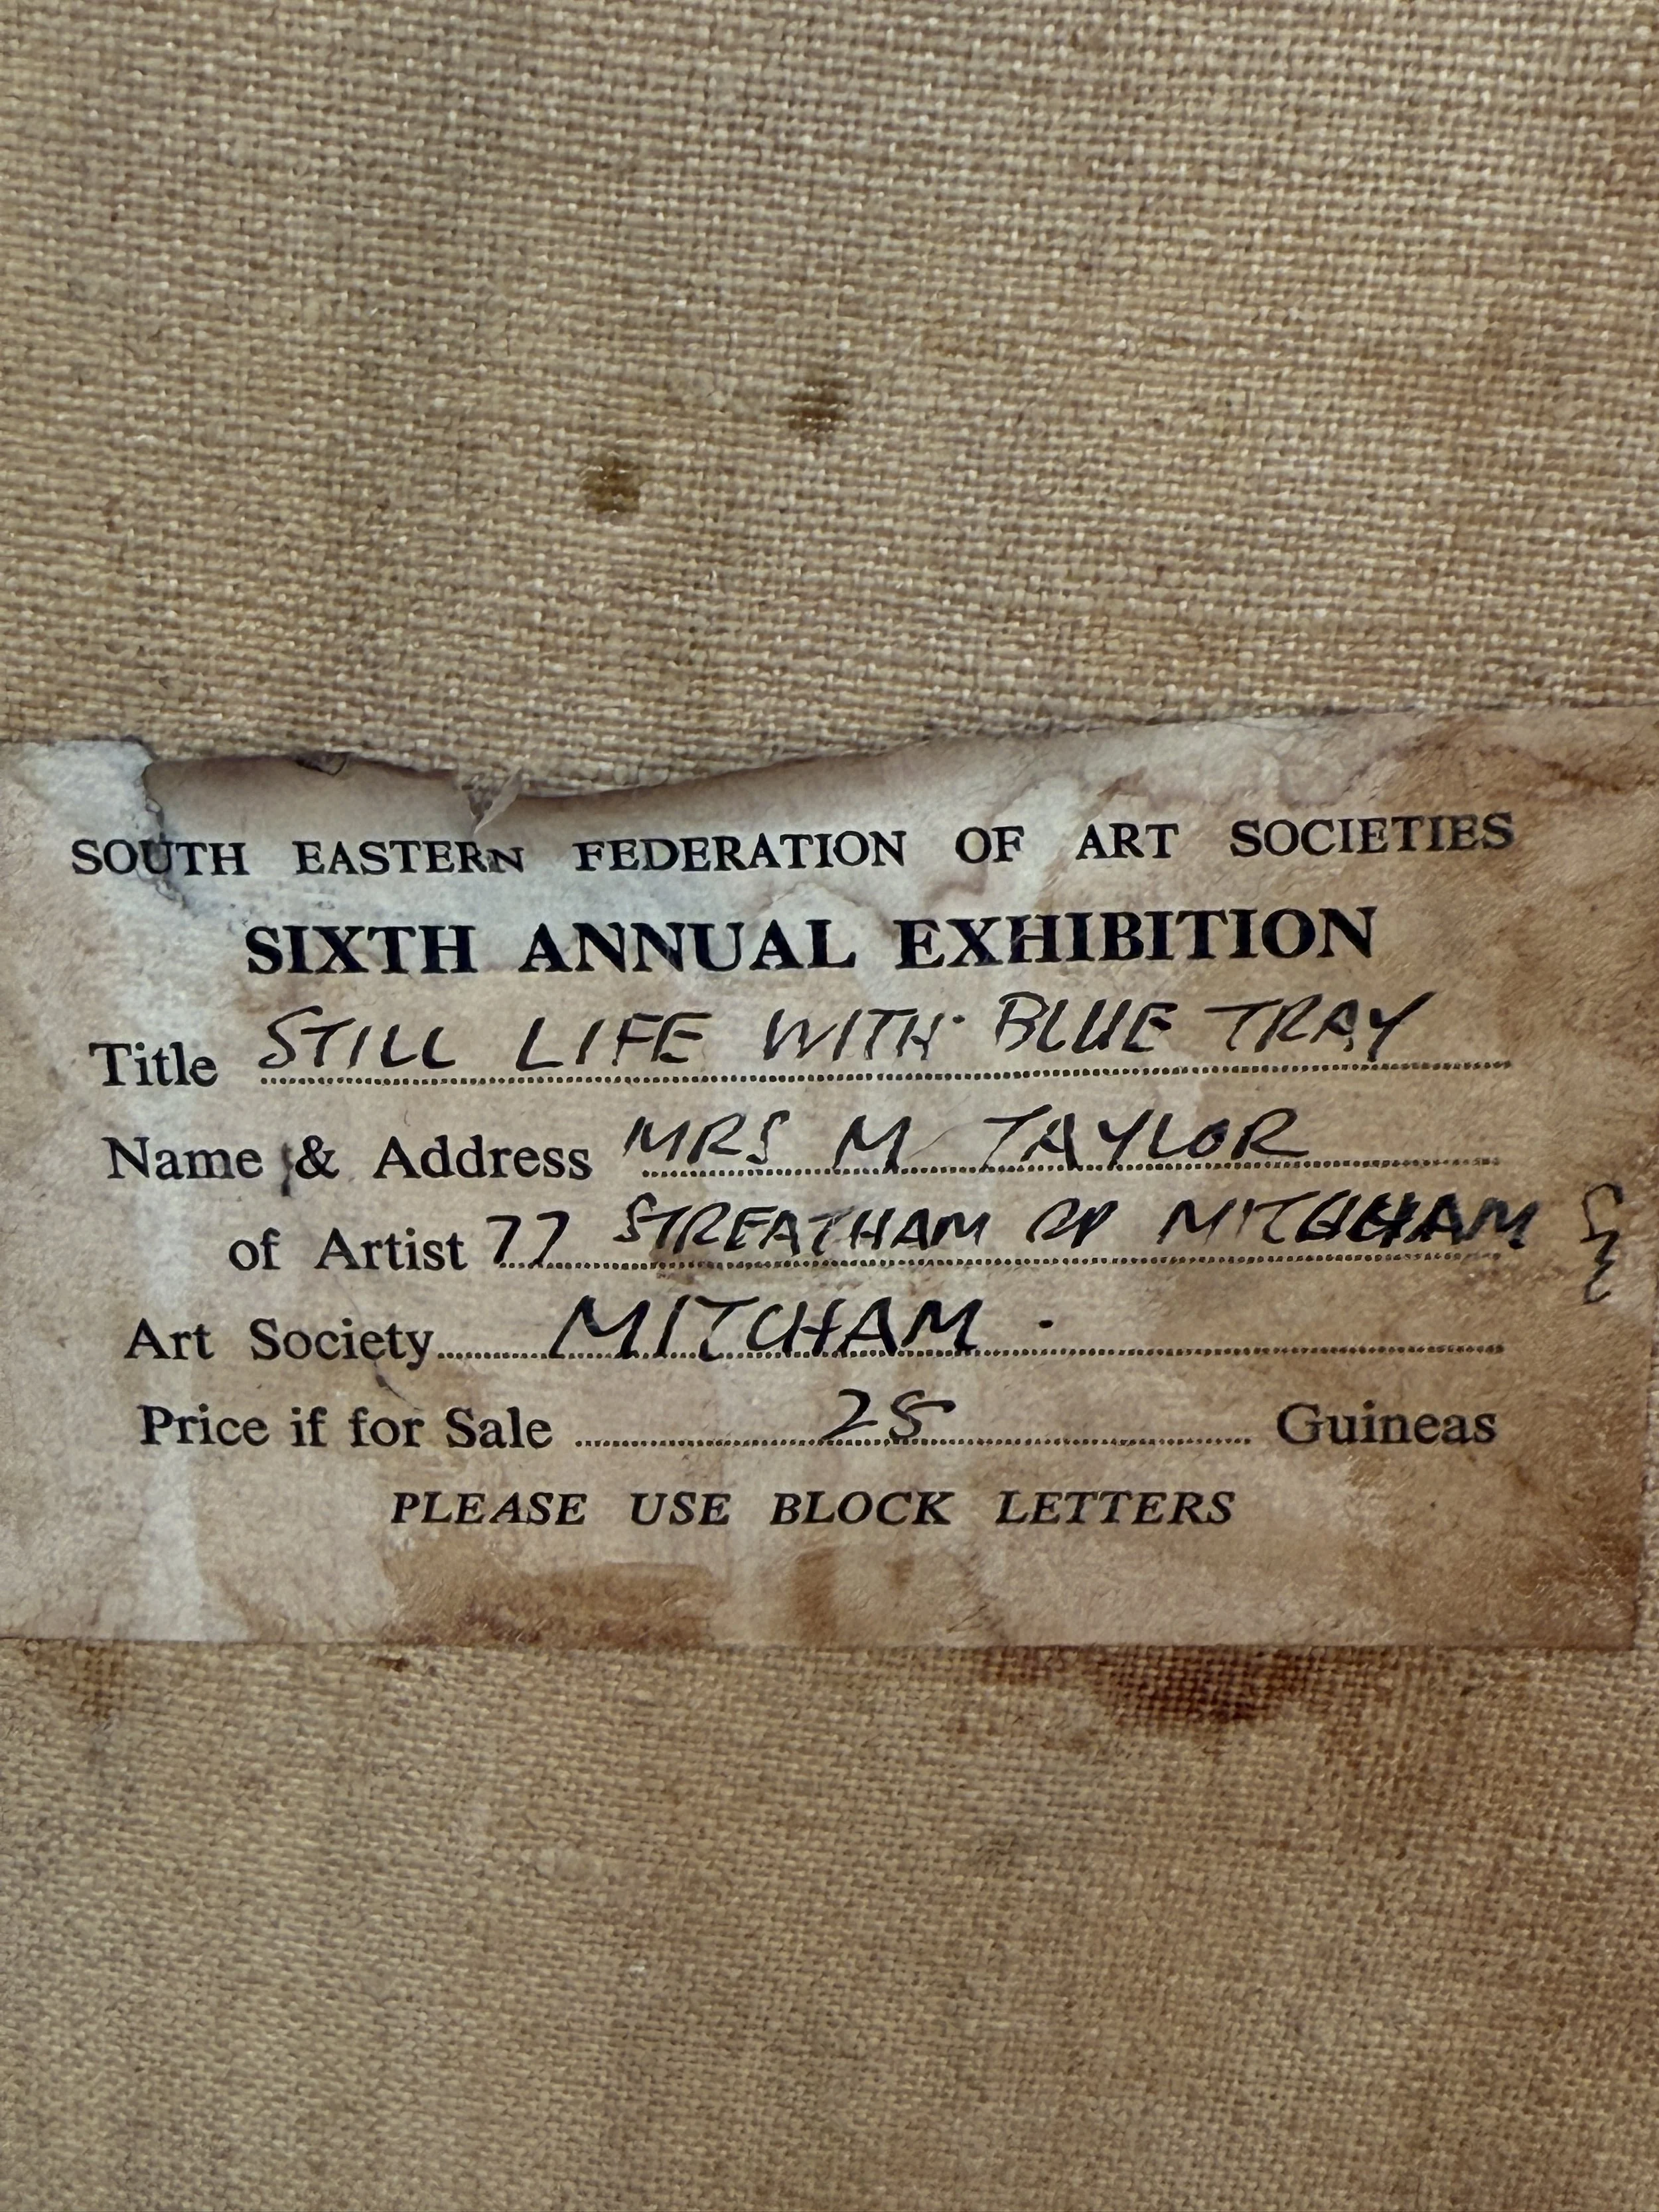 SOUTH EASTERN FEDERATION OF ART SOCIETIES
SIXTH ANNUAL EXHIBITION
Title STILL LIFE WITH BLUE TRAY
Name & Address MRS M TAYLOR
of Artist 77 STREATHAM RD MITCHAM
Art Society MITCHAM.
Price if for Sale 25 Guineas
PLEASE USE BLOCK LETTERS